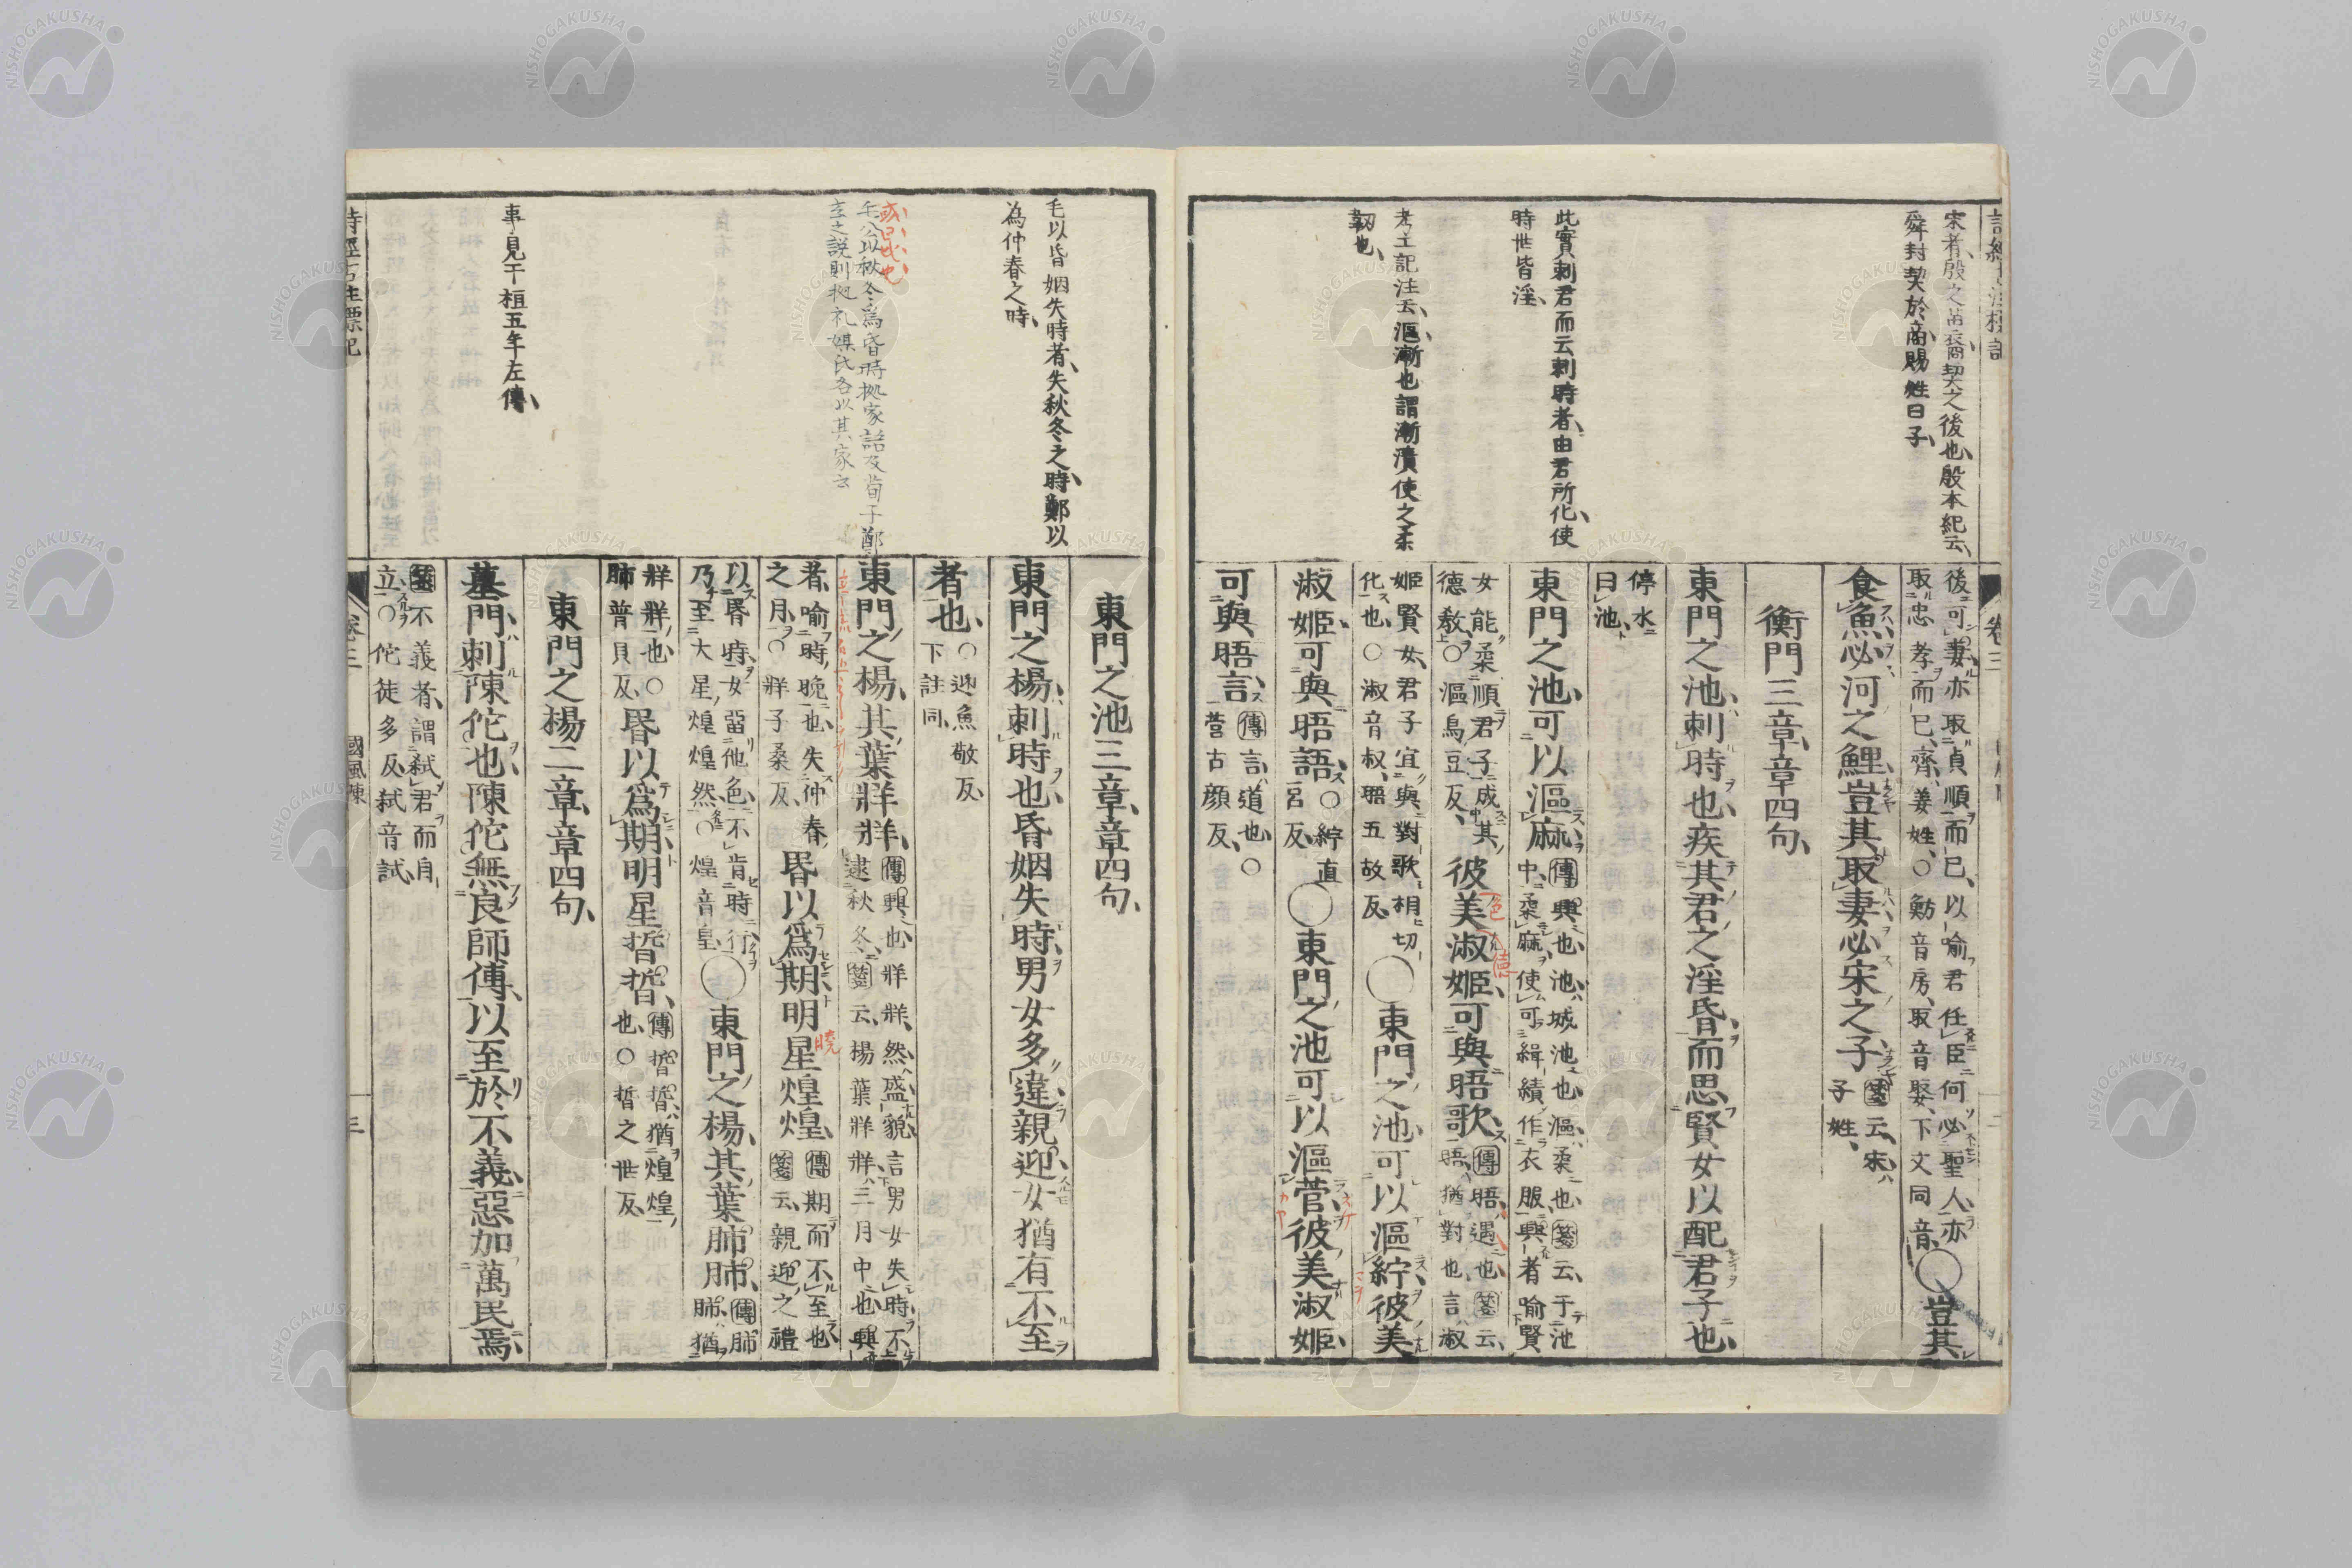 宋者殷之苗裔契之後也殷本紀云
舜封契於商賜姓曰子
此實刺君而云刺時者由君所化使
時世皆淫
考工記注云漚漸也謂漸漬使之柔
韌也
後可妻亦取貞順而已以喻君任臣何必聖人亦
取忠孝而已齊姜姓○魴音房取音娶下文同音○豈其
食魚必河之鯉豈其取妻必宋之子箋云宋
子姓
衡門三章章四句
東門之池刺時也疾其君之淫昏而思賢女以配君子也
停水
曰池
東門之池可以漚麻傳興也池城池也漚柔也箋云于池
中柔麻使可緝績作衣服興者喻賢
女能柔順君子成其
德教○漚烏豆反彼美淑姬可與晤歌傳晤遇也箋云
晤猶對也言淑
姬賢女君子宜與對歌相切
化也○淑音叔晤五故反○東門之池可以漚紵彼美
淑姬可與晤語○紵直
呂反○東門之池可以漚菅彼美淑姬
可與晤言傳言道也○
菅古顏反
毛以昏姻失時者失秋冬之時鄭以
為仲春之時
毛公以秋冬為昏時據家語及荀子鄭
玄之説則據礼媒氏各以其家云
事見于桓五年左傳
東門之池三章章四句
東門之楊刺時也昏姻失時男女多違親迎女猶有不至
者也○迎魚敬反
下註同
東門之楊其葉牂牂傳興也牂牂然盛貌言男女失時不
逮秋冬箋云楊葉牂牂三月中也興
者喻時晚也失仲春
之月○牂子桑反昬以為期明星煌煌傳期而不至也
箋云親迎之禮
以昬時女留他色不肯時行
乃至大星煌煌然○煌音皇○東門之楊其葉肺肺傳肺
肺猶
牂牂也○
肺普貝反昬以為期明星晢晢傳晢晢猶煌煌
也○晢之世反
東門之楊二章章四句
墓門刺陳佗也陳佗無良師傅以至於不義惡加萬民焉
箋不義者謂弑君而自
立○佗徒多反弑音試
卷三
國風陳